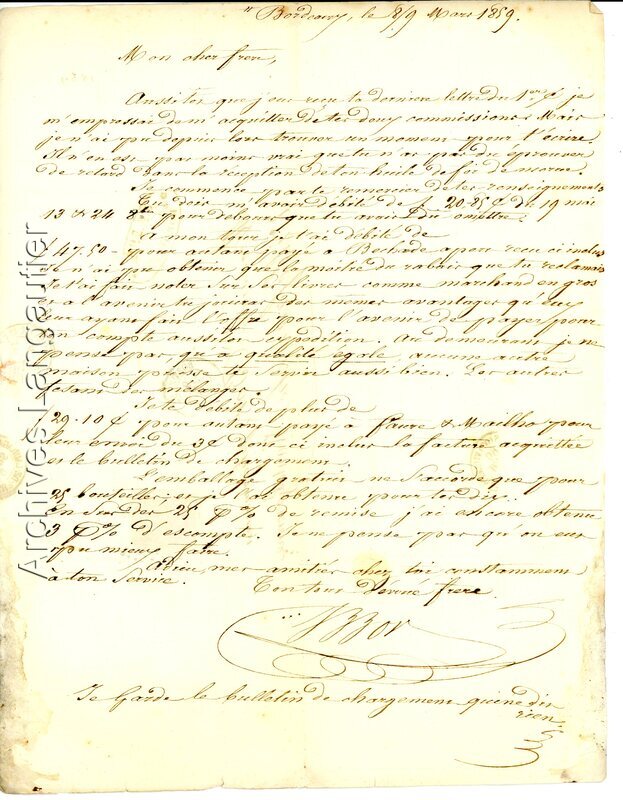 Bordeaux, le 8/9 Mars 1859.
Mon cher frere,
Aussitot que j'eus reçu ta derniere lettre du 1er Ct je
m'empressai de m'acquitter de tes deux commissions. Mais
je n'ai pu depuis lors trouver un moment pour t'écrire.
Il n'en est pas moins vrai que tu n'as pas dû éprouver
de retard dans la réception de ton huile de foie de morue.
Je commence par te remercier de tes renseignements
Tu dois m'avoir débité de f 20-25 c du 19 mai
13 & 24 8bre pour debours que tu avais dû omettre.
A mon tour je t'ai débité de
f 47.50 - pour autant payé à Barbade apen reçu ci inclus
Je n'ai pu obtenir que la moitié du rabais que tu reclamais
Je t'ai fait noter sur ses livres comme marchand en gros
et à l'avenir tu jouiras des mêmes avantages qu'eux
lui ayant fait l'offre pour l'avenir de payer pour
ton compte aussitot expédition. Au demeurant je ne
pense pas, qu'à qualité égale, aucune autre
maison puisse te servir aussi bien. Les autres
fesant des mélanges.
Je te débite de plus de
f 29-10 c pour autant payé à Faure & Mailho pour
leur envoi du 3 ct dont ci inclus la facture acquittée
et le bulletin de chargement.
L'emballage gratuit ne s'accorde que pour
25 bouteilles, et je l'ai obtenu pour les dix.
En sus des 25 p% de remise j'ai encore obtenu
3 p% d'escompte. Je ne pense pas qu'on eut
pu mieux faire.
Adieu, mes amitiés chez toi constamment
à ton service. Ton tout dévoué frere
Je garde le bulletin de chargement qui ne dit
rien.
Archives Langautier